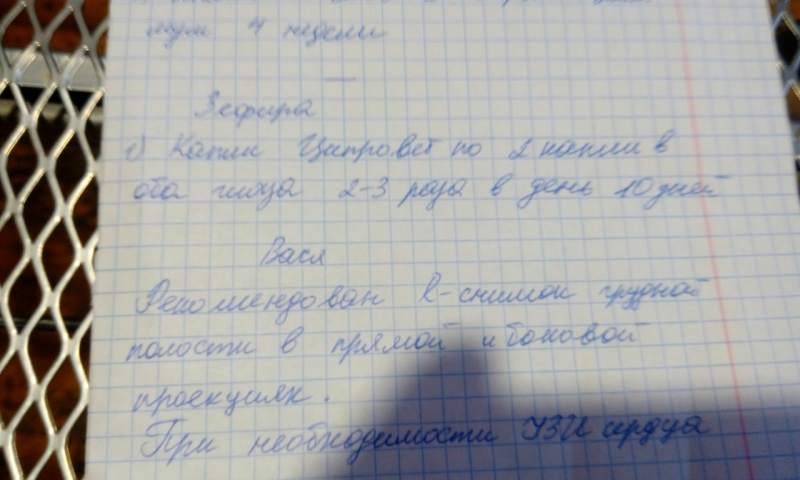 4 недели
Зефира
1) Капли Ципровет по 2 капли в
оба глаза 2-3 раза в день 10 дней
Вася
Рекомендован R-снимок грудной
полости в прямой и боковой
проекциях.
При необходимости УЗИ сердца